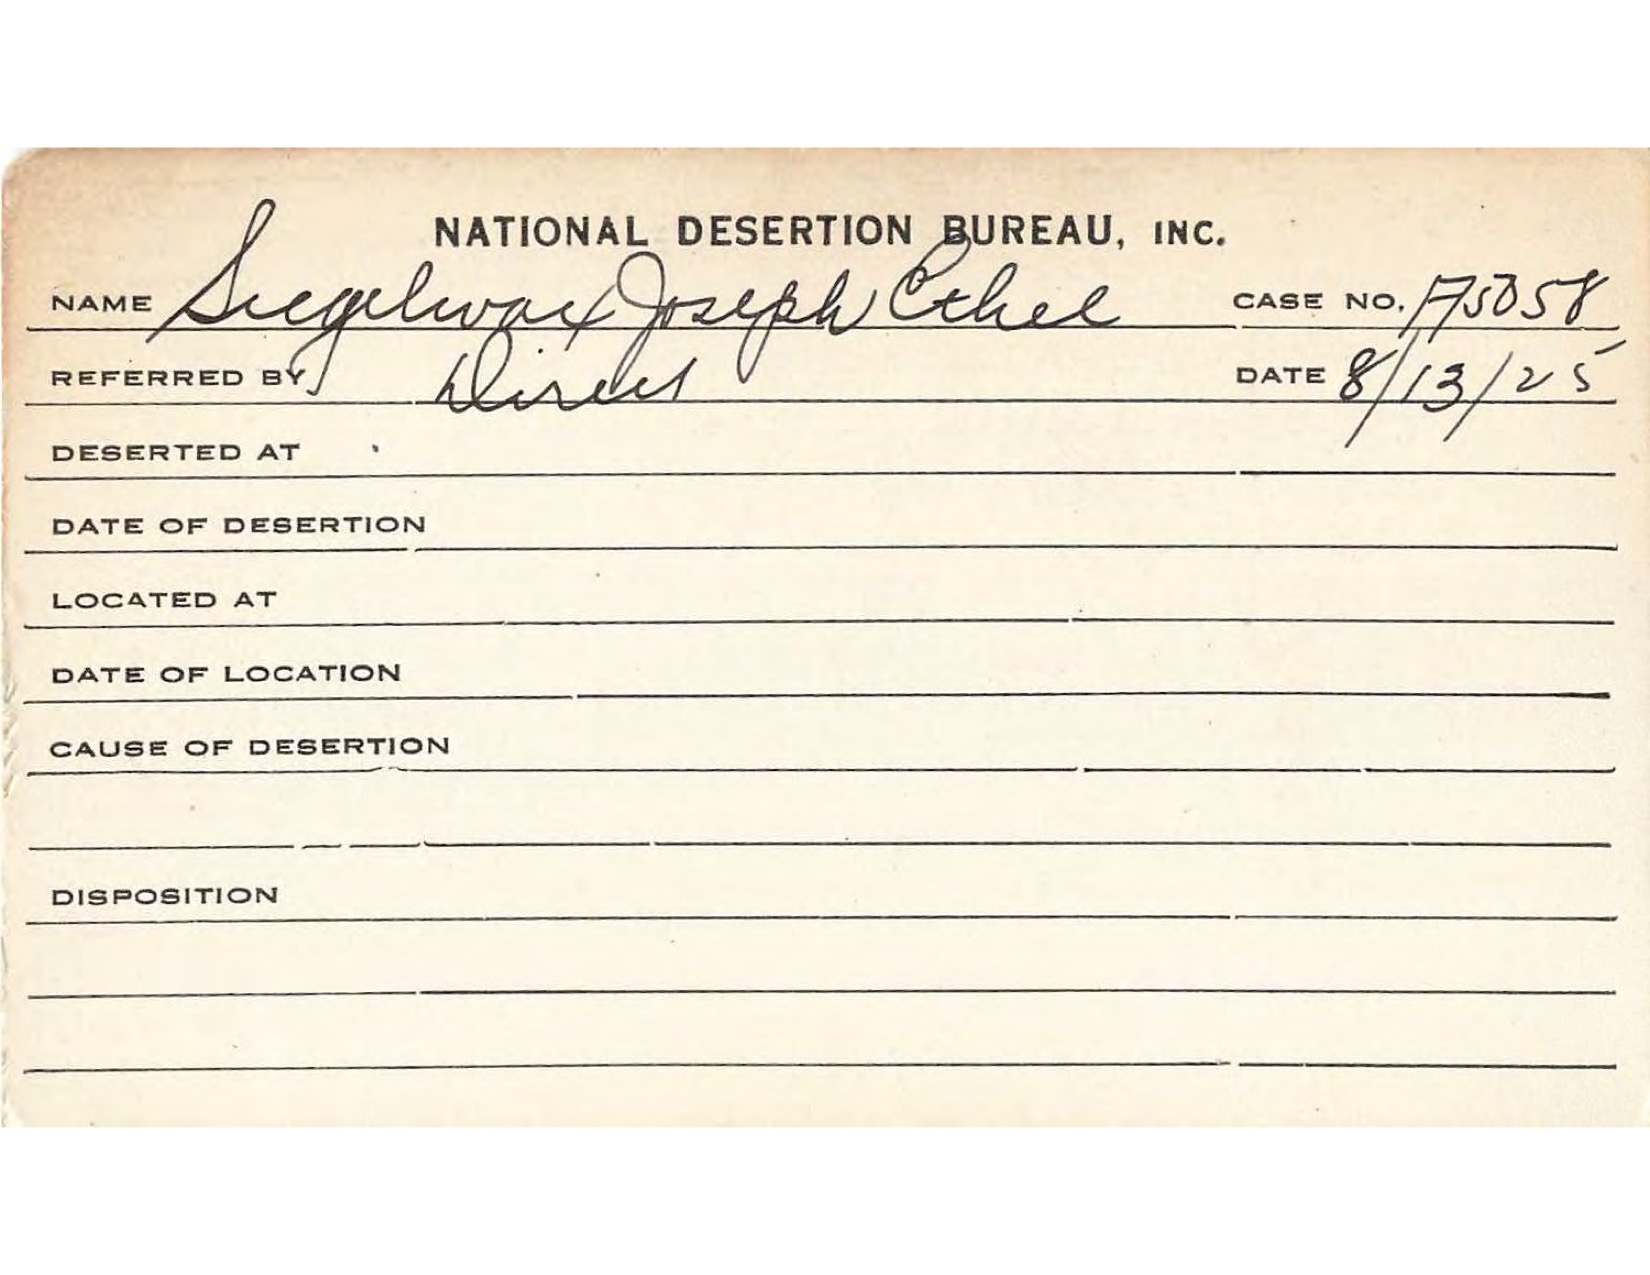 NATIONAL DESERTION BUREAU, INC.
NAME Siegelwax Joseph Ethel CASE NO. A5058
REFERRED BY Direct DATE 8/13/25
DESERTED AT
DATE OF DESERTION
LOCATED AT
DATE OF LOCATION
CAUSE OF DESERTION
DISPOSITION